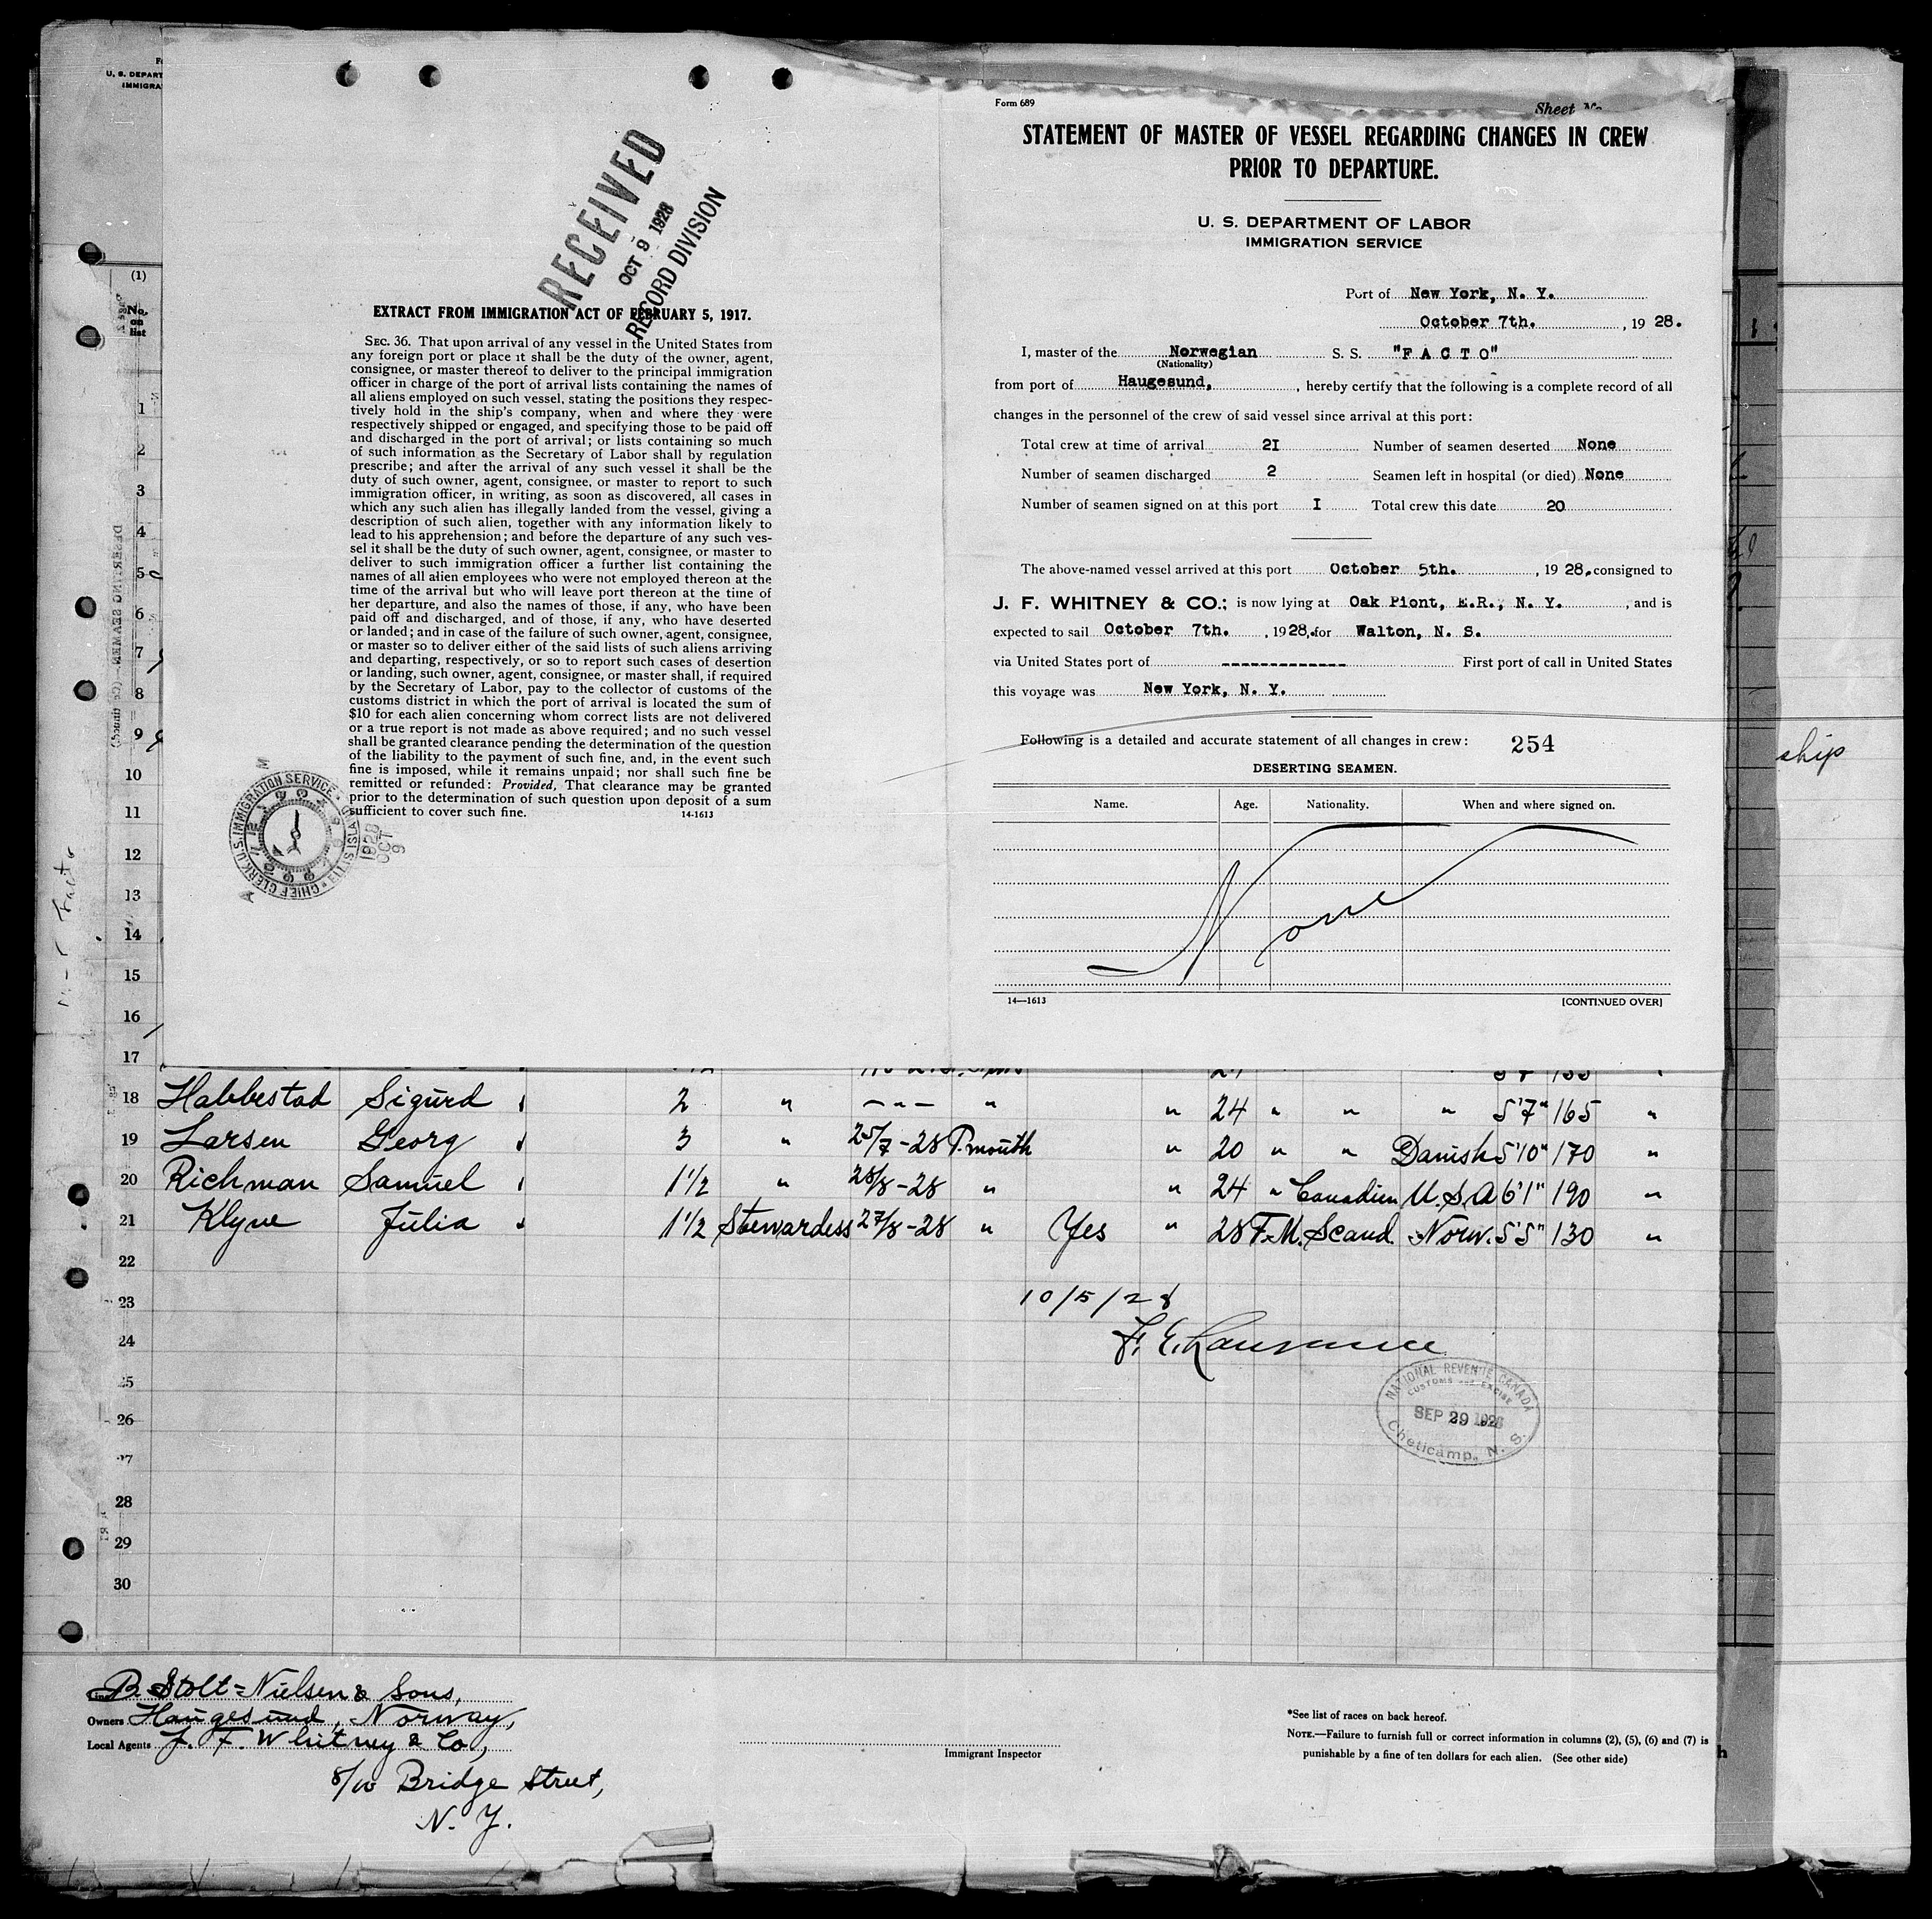 U. S. DEPART
IMMIGRA
(1)
No.
on
list
1
2
3
4
5
6
7
8
9
10
11
12
13
14
15
16
17
RECEIVED
OCT 9 1928
RECORD DIVISION
EXTRACT FROM IMMIGRATION ACT OF FEBRUARY 5, 1917.
SEC. 36. That upon arrival of any vessel in the United States from
any foreign port or place it shall be the duty of the owner, agent,
consignee, or master thereof to deliver to the principal immigration
officer in charge of the port of arrival lists containing the names of
all aliens employed on such vessel, stating the positions they respec-
tively hold in the ship's company, when and where they were
respectively shipped or engaged, and specifying those to be paid off
and discharged in the port of arrival; or lists containing so much
of such information as the Secretary of Labor shall by regulation
prescribe; and after the arrival of any such vessel it shall be the
duty of such owner, agent, consignee, or master to report to such
immigration officer, in writing, as soon as discovered, all cases in
which any such alien has illegally landed from the vessel, giving a
description of such alien, together with any information likely to
lead to his apprehension; and before the departure of any such ves-
sel it shall be the duty of such owner, agent, consignee, or master to
deliver to such immigration officer a further list containing the
names of all alien employees who were not employed thereon at the
time of the arrival but who will leave port thereon at the time of
her departure, and also the names of those, if any, who have been
paid off and discharged, and of those, if any, who have deserted
or landed; and in case of the failure of such owner, agent, consignee,
or master so to deliver either of the said lists of such aliens arriving
and departing, respectively, or so to report such cases of desertion
or landing, such owner, agent, consignee, or master shall, if required
by the Secretary of Labor, pay to the collector of customs of the
customs district in which the port of arrival is located the sum of
$10 for each alien concerning whom correct lists are not delivered
or a true report is not made as above required; and no such vessel
shall be granted clearance pending the determination of the question
of the liability to the payment of such fine, and, in the event such
fine is imposed, while it remains unpaid; nor shall such fine be
remitted or refunded: Provided, That clearance may be granted
prior to the determination of such question upon deposit of a sum
sufficient to cover such fine. 14-1613
CHIEF CLERK U.S. IMMIGRATION SERVICE ELLIS ISLAND
OCT 9
Form 689
Sheet No
STATEMENT OF MASTER OF VESSEL REGARDING CHANGES IN CREW
PRIOR TO DEPARTURE.
U. S. DEPARTMENT OF LABOR
IMMIGRATION SERVICE
Port of New York, N. Y.
October 7th. , 19 28.
I, master of the Norwegian S. S. "F A C T O"
(Nationality)
from port of Haugesund, , hereby certify that the following is a complete record of all
changes in the personnel of the crew of said vessel since arrival at this port:
Total crew at time of arrival 2I Number of seamen deserted None
Number of seamen discharged 2 Seamen left in hospital (or died) None
Number of seamen signed on at this port I Total crew this date 20
The above-named vessel arrived at this port October 5th. , 19 28. consigned to
J. F. WHITNEY & CO.; is now lying at Oak Piont, E.R., N. Y. , and is
expected to sail October 7th. , 19 28. for Walton, N. S.
via United States port of ------------- First port of call in United States
this voyage was New York, N. Y.
Following is a detailed and accurate statement of all changes in crew: 254
DESERTING SEAMEN.
Name. Age. Nationality. When and where signed on.
None
14—1613 [CONTINUED OVER]
ship
Facto
18 Habbestad Sigurd 2 " — " — " " 24 " " " 5'7" 165 "
19 Larsen Georg 3 " 25/7-28 P.mouth " 20 " " Danish 5'10" 170 "
20 Richman Samuel 1 1/2 " 28/8-28 " " 24 " Canadien U.S.A 6'1" 190 "
21 Klyve Julia 1 1/2 Stewardess 27/8-28 " Yes " 28 F.M. Scand. Norw. 5'5" 130 "
22
23 10/5/28
24 F. E. Laurance
25
26
27
28
29
30
NATIONAL REVENUE CANADA
CUSTOMS AND EXCISE
SEP 29 1928
Cheticamp, N. S.
B. Stolt-Nielsen & Sons,
Owners Haugesund, Norway,
Local Agents J. F. Whitney & Co,
8/10 Bridge Street,
N. Y.
Immigrant Inspector
*See list of races on back hereof.
NOTE.—Failure to furnish full or correct information in columns (2), (5), (6) and (7) is
punishable by a fine of ten dollars for each alien. (See other side)